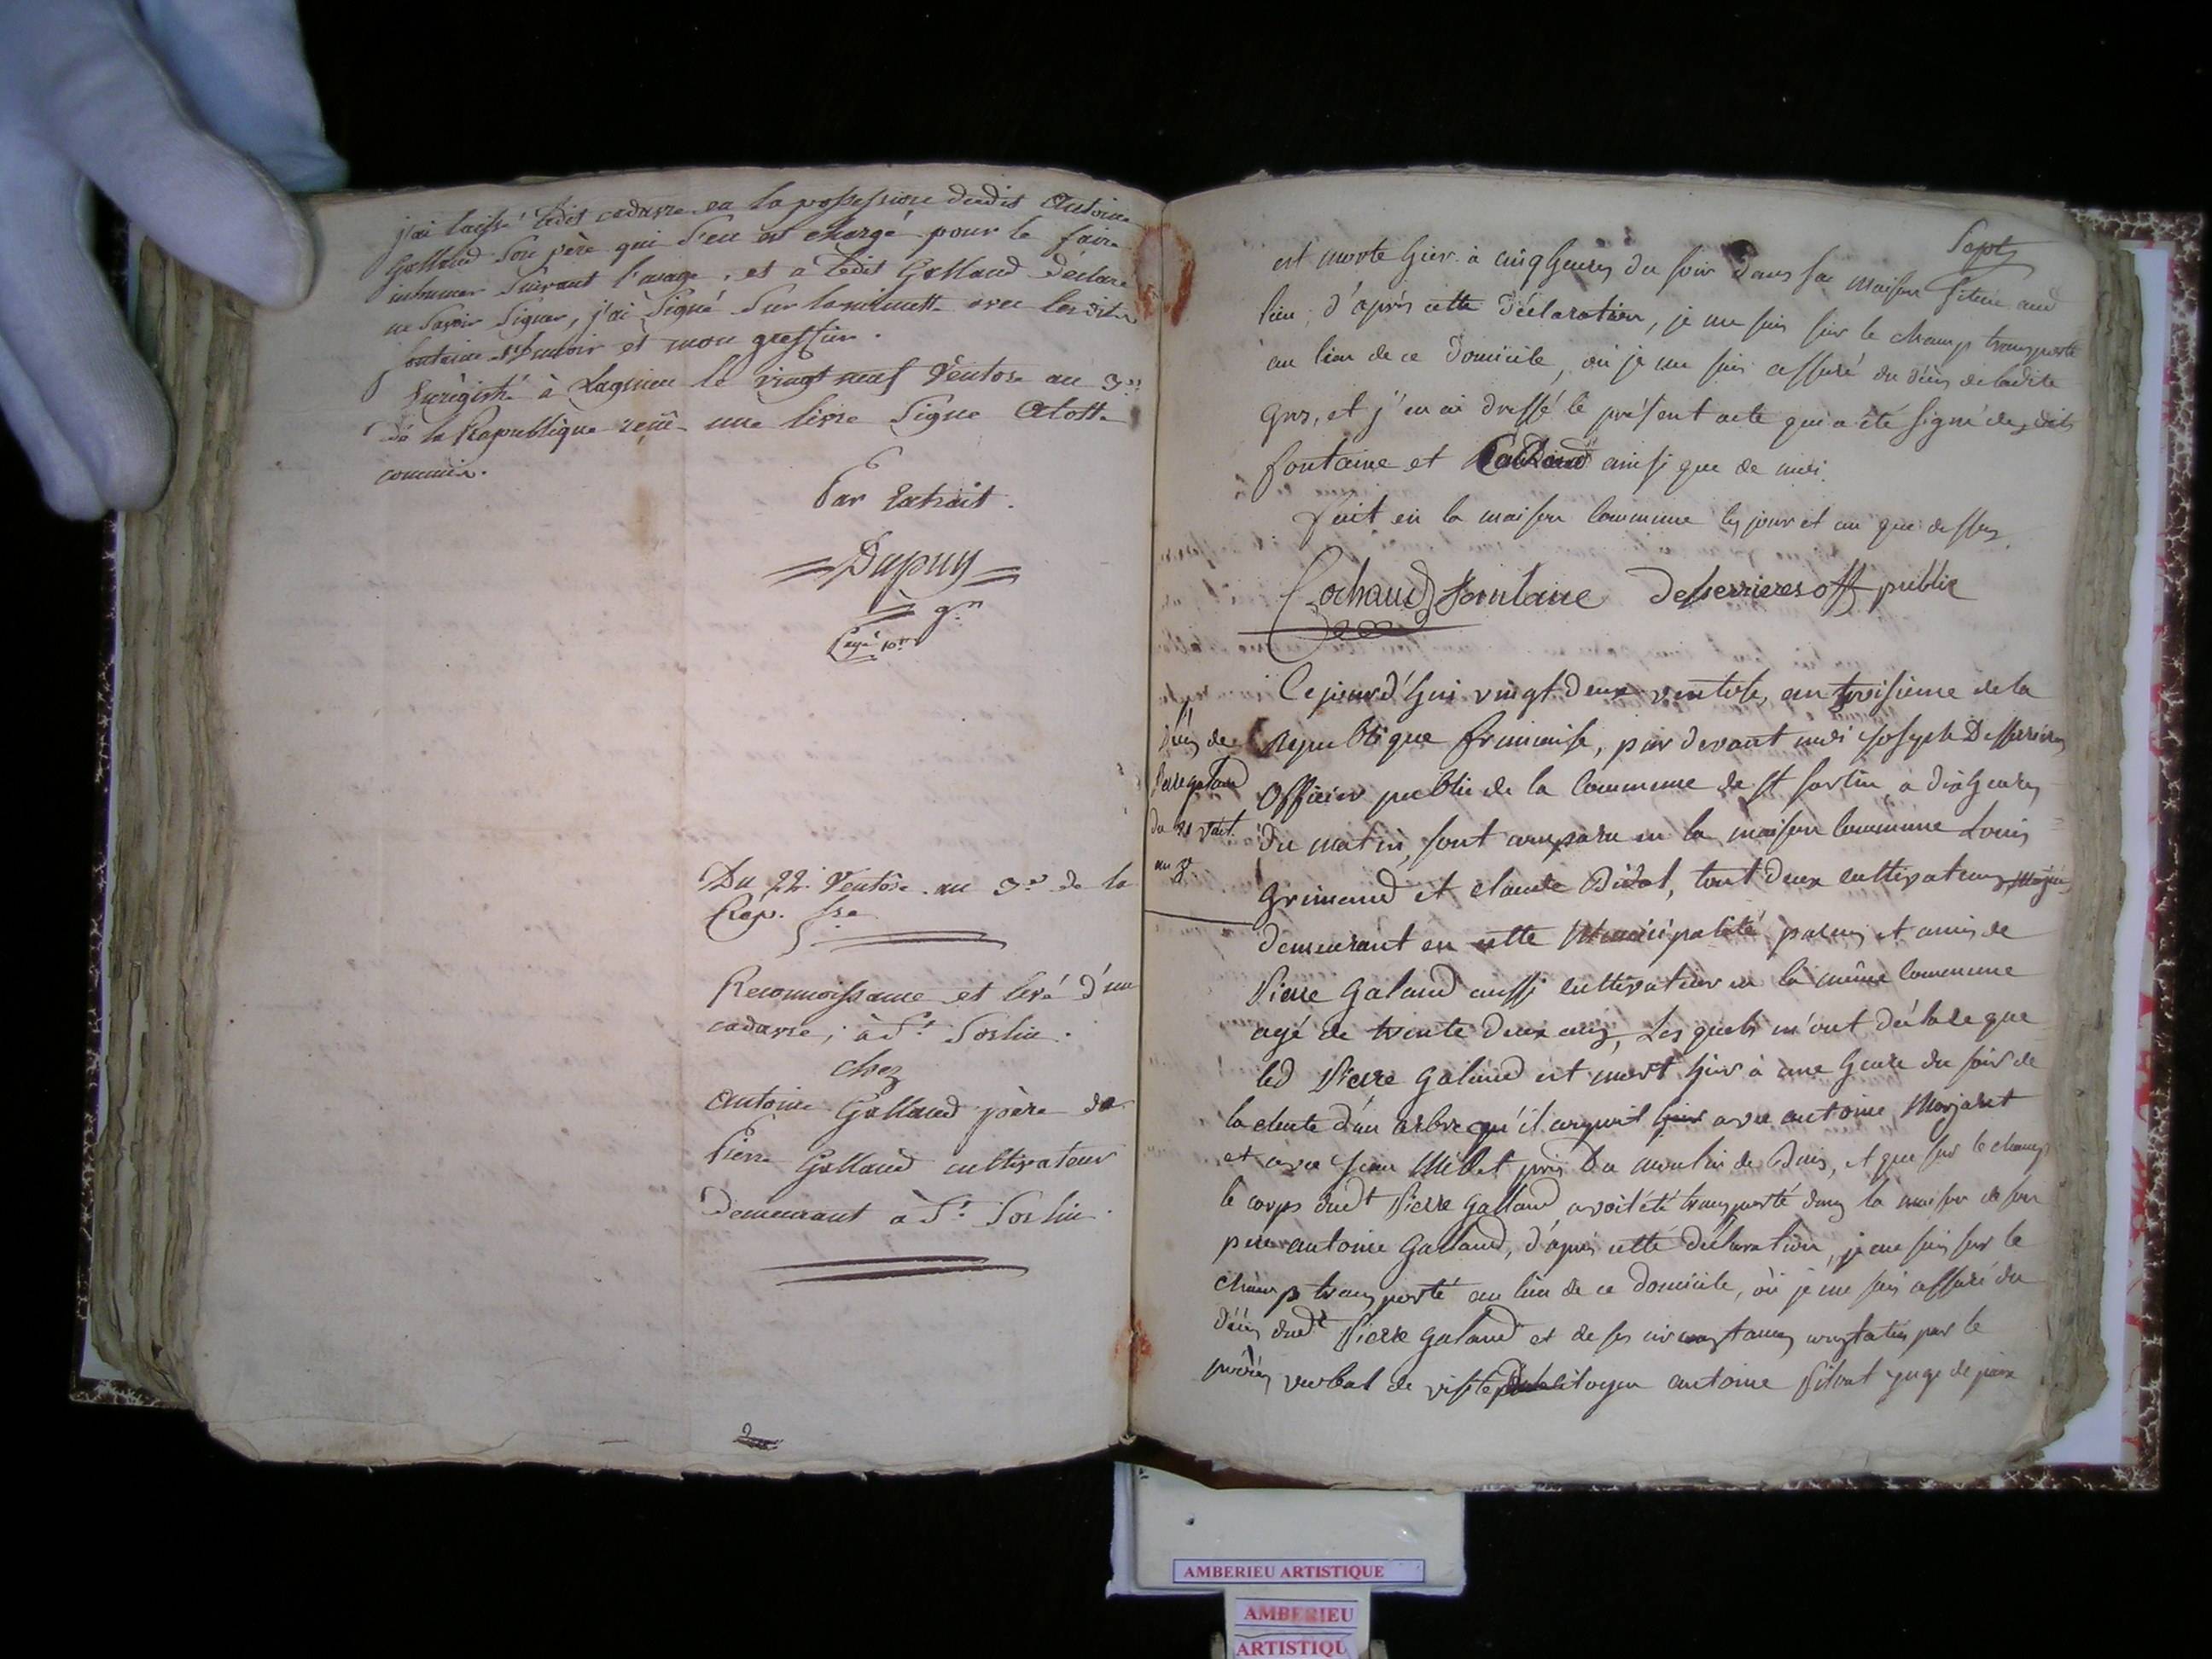 j'ai laissé ledit cadavre en la possession dudit Antoine
Galland son père qui s'en est chargé pour le faire
inhumer suivant l'usage, et a ledit Galland déclaré
ne savoir signer, j'ai signé sur la minutte avec lesdits
fontaine et mon greffier.
Enregistré à Lagnieu le vingt neuf Ventose an 3e
de la Republique reçu une livre signé
commis.
Par Extrait.
Dupuy
gr
Du 22. Ventôse an 3e de la
Rep. fse
Reconnoissance et levé d'un
cadavre, à St Sorlin.
chez
Antoine Galland père de
Pierre Galland cultivateur
Demeurant à St Sorlin.
Sept
est morte hier à cinq heures du soir dans sa maison située aud
lieu, d'après cette déclaration, je me suis sur le champ transporté
au lieu de ce domicile, où je me suis assuré du décès de ladite
et j'en ai dressé le présent acte qui a été signé desdits
fontaine et Cochaud ainsi que de moi.
fait en la maison commune les jour et an que dessus.
Cochaud fontaine Desserrieres off public
Cejourd'hui vingt deux ventose, an troisieme de la
Republique francaise, par devant moi Joseph Desserrieres
Officier public de la commune de St sorlin, a dix heures
du matin, sont comparu en la maison commune Louis
Grimaud et claude Bidal, tout deux cultivateurs
demeurant en cette Municipalité parens et amis de
Pierre Galand aussi cultivateur en la même commune
agé de trente deux ans, Lesquels m'ont déclaré que
led Pierre Galand est mort hier à une heure du soir de
la chute d'un arbre qu'il coupoit hier avec antoine Marjaret
et avec Jean Milet près du moulin de Buis, et que sur le champ
le corps dudt Pierre Galland avoit été transporté dans la maison de son
pere antoine Galland, d'après cette déclaration, je me suis sur le
champ transporté au lieu de ce domicile, où je me suis assuré du
décès dudt Pierre Galand et de ses circonstances constatées par le
procès verbal de visite citoyen antoine juge de paix
Décès de
Pierre galand
du 21 vent.
an 3e
AMBERIEU ARTISTIQUE
AMBERIEU
ARTISTIQU